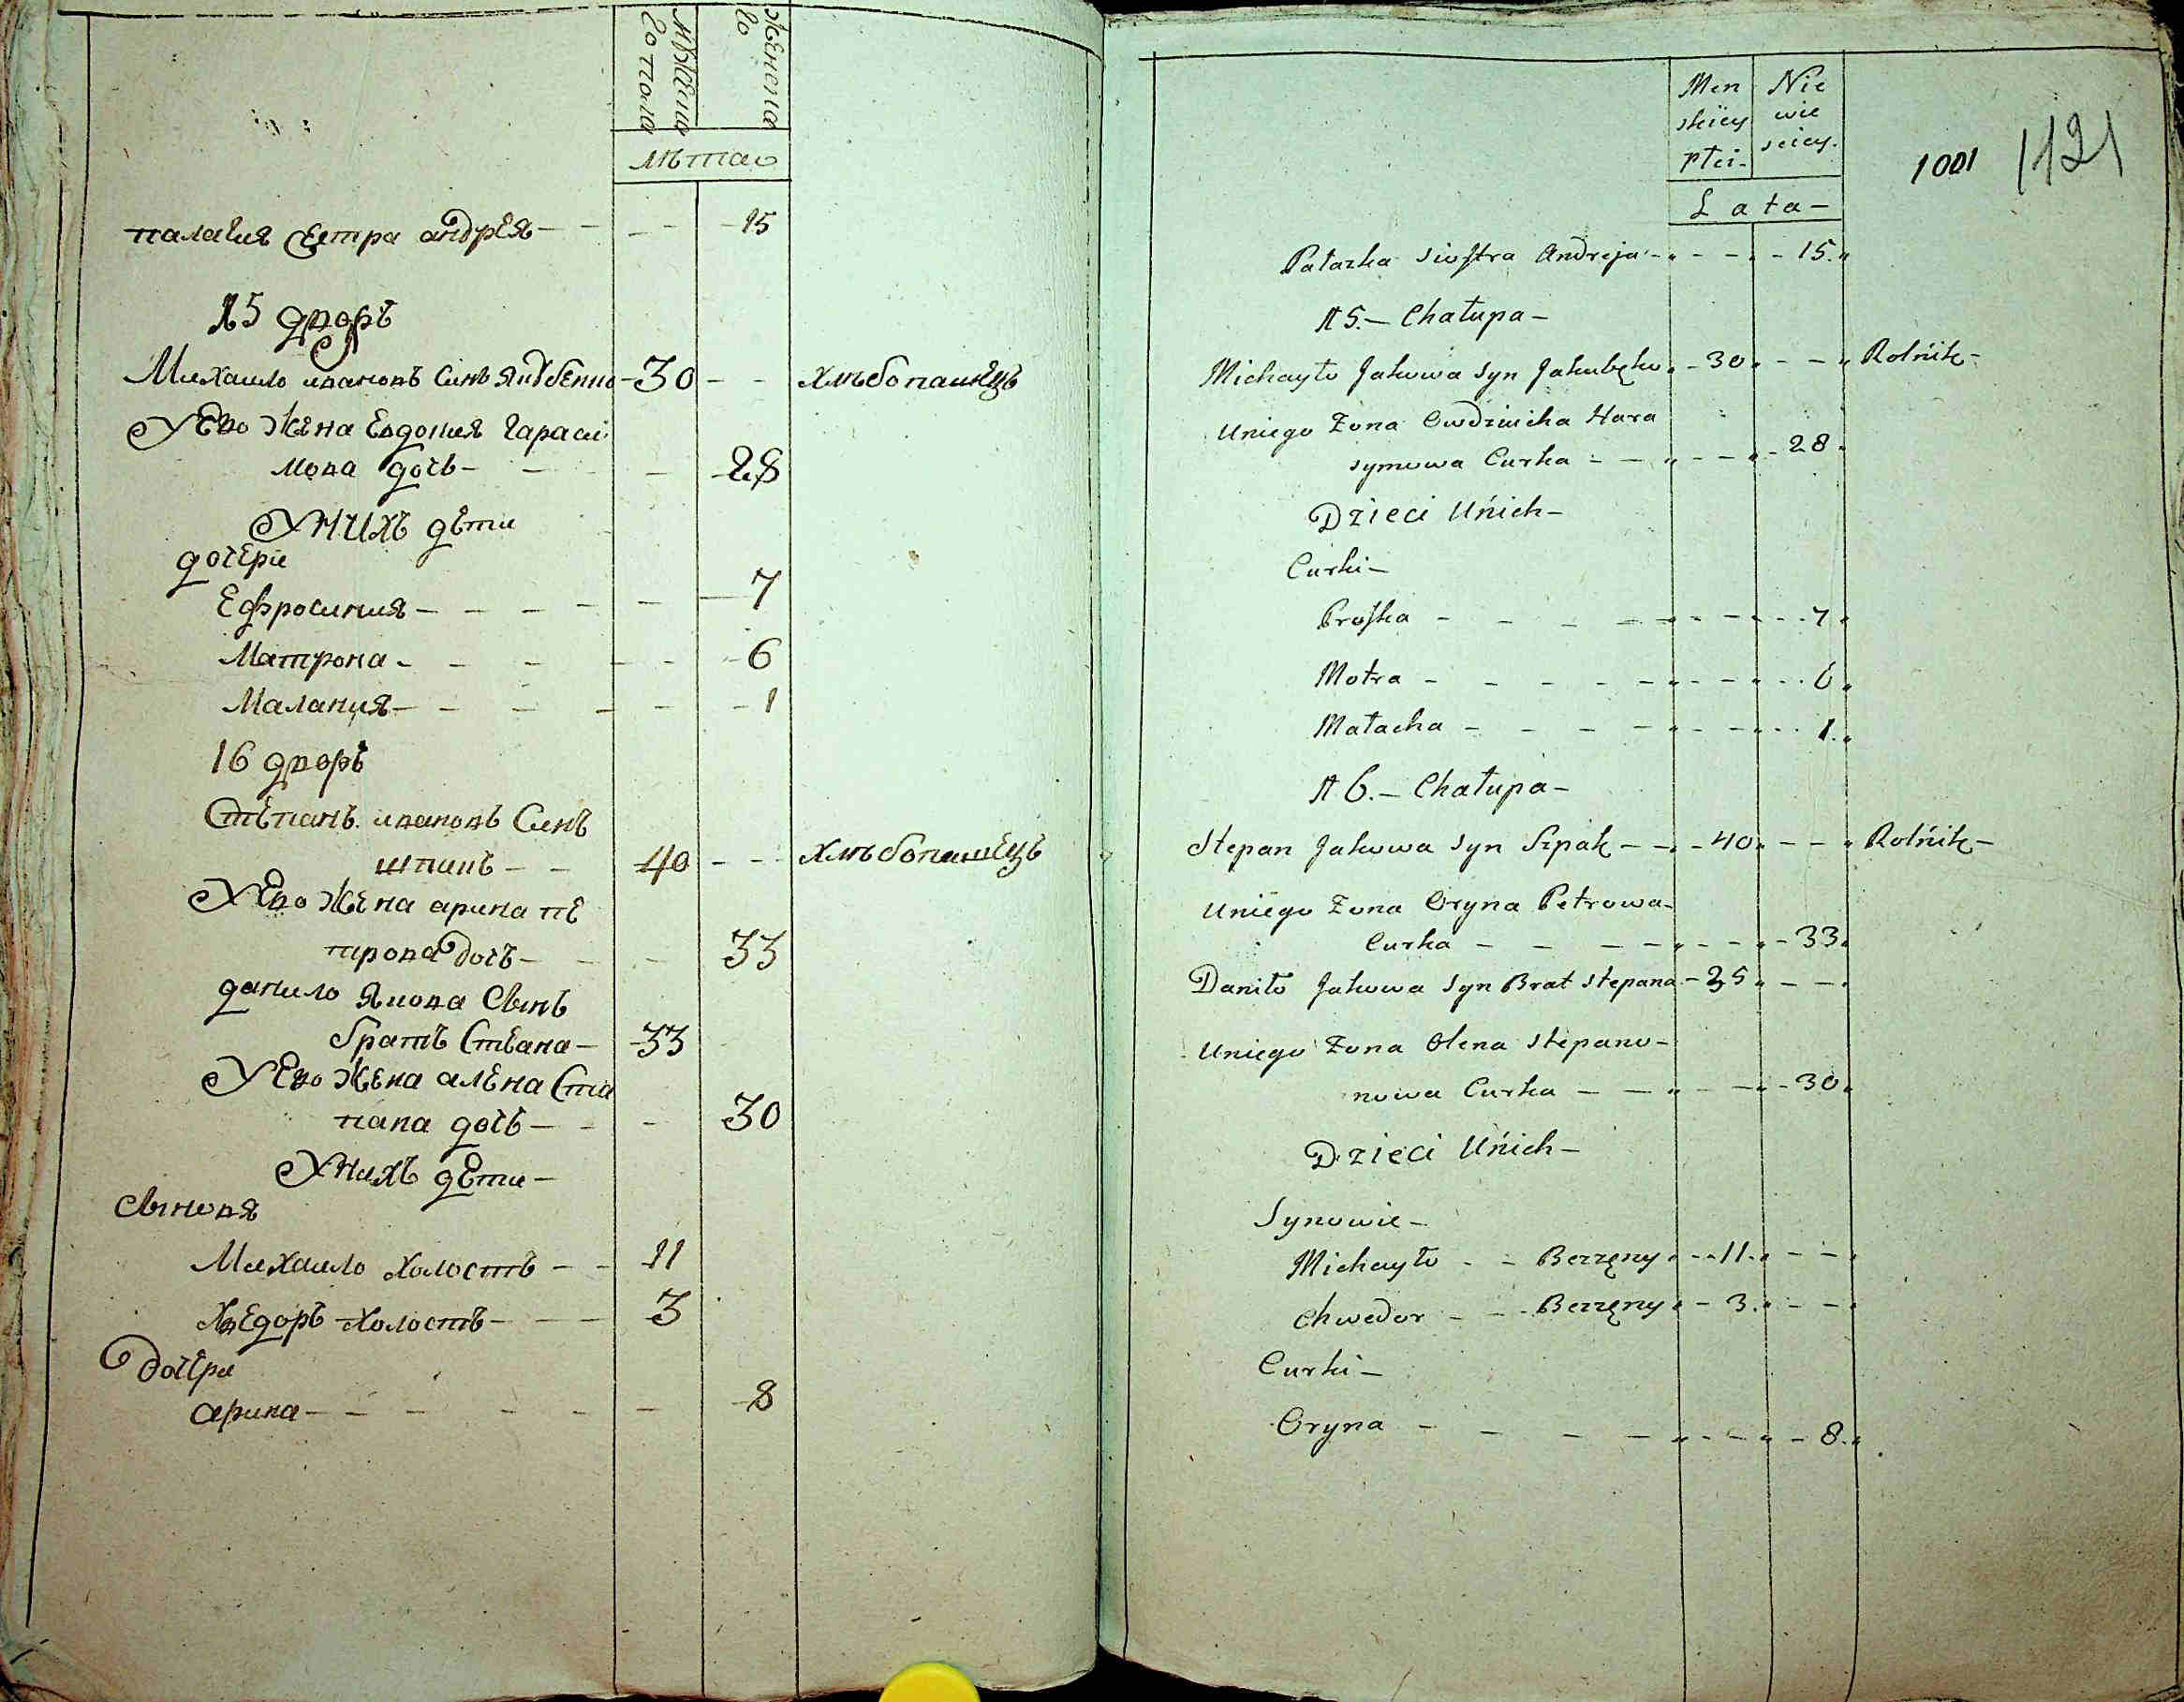 Мужеска
го пола
Женска
го
лѣта
палагия сестра андрея - - - - 15
15 дворъ
Михаило ивановъ синъ якубенко - 30 - - хлѣбопашецъ
У Ево Жена Евдокия Гараси
мова дочь - - - 28
У НИХЪ дѣти
дочери
Ефросиния - - - - - 7
Матрона - - - - - 6
Малания - - - - - 1
16 дворъ
Степанъ ивановъ Синъ
шпакъ - - 40 - - хлѣбопашецъ
У Ево Жена арина пе
трова дочь - - - 33
данило Якова Сынъ
братъ Степана - 33
У Ево Жена алена Сте
пана дочь - - - 30
У нихъ дети -
Сыновя
Михаило холостъ - - 11
Хведоръ холостъ - - - 3
Дочери
арина - - - - - - 8
Men
skiey
płci -
Nie
wie
sciey.
1001 1121
Lata -
Pałazka siostra Andreja - - - - 15.
15. - Chałupa -
Michayło Jakowa syn Jakubęko - 30 - - Rolnik -
Uniego Żona Owdziucha Hara
symowa Curka - - - - 28.
Dzieci Unich -
Curki -
Proska - - - - - - - 7.
Motra - - - - - - - 6.
Małacha - - - - - - - 1.
16. - Chałupa -
Stepan Jakowa syn Szpak - - - 40 - - Rolnik -
Uniego Żona Oryna Petrowa -
Curka - - - - - - - 33.
Daniło Jakowa syn Brat stepana - 35 - -
Uniego Żona Olena stepano -
nowa Curka - - - - - 30.
Dzieci Unich -
Synowie -
Michayło - - Bezzęny - 11 - -
Chwedor - - Bezzęny - 3 - -
Curki -
Oryna - - - - - - - 8.